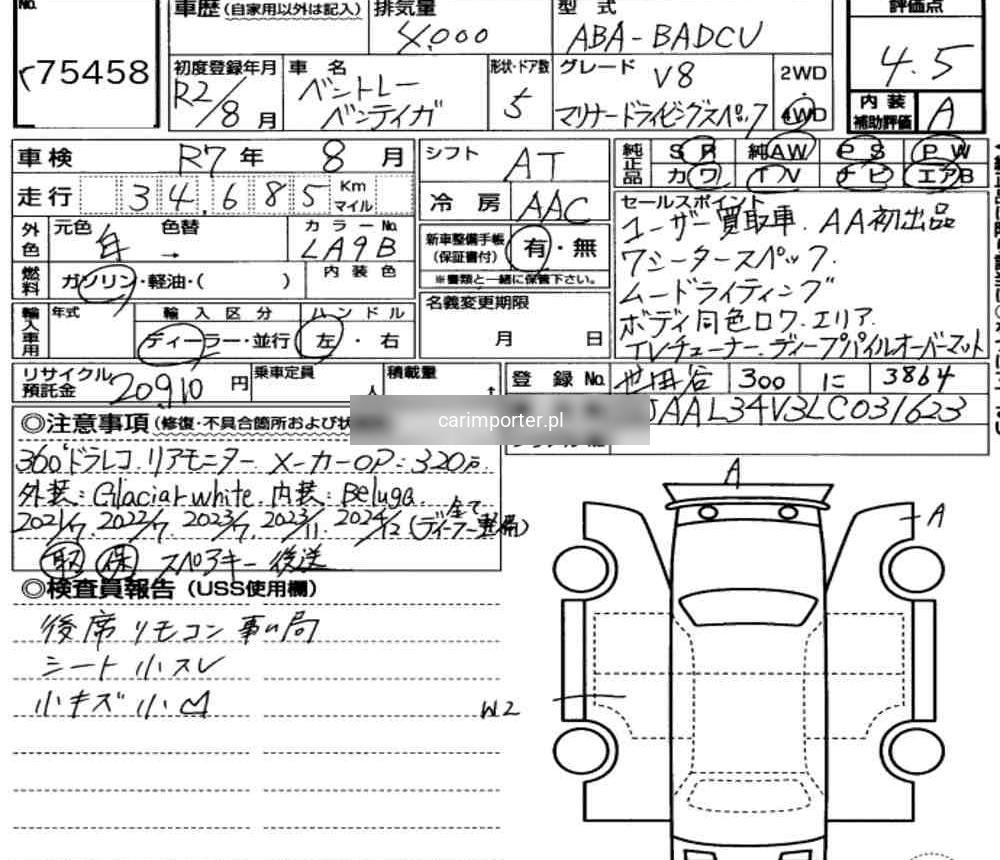 No.
75458
車歴(自家用以外は記入)
排気量
4,000
型 式
ABA-BADCU
評価点
4.5
初度登録年月
R2/8 月
車 名
ベントレー
ベンテイガ
形状・ドア数
5
グレード V8
マリナードライビングスペック
2WD
・
4WD
内装
補助評価
A
車検 R7 年 8 月
走行 34,685 Km マイル
シフト AT
冷房 AAC
純正品
SR 純AW PS PW
カワ TV ナビ エアB
外色
元色 白
色替 →
カラーNo.
LA9B
燃料
ガソリン・軽油・( )
内装色
新車整備手帳
(保証書付)
有・無
※書類と一緒に保管下さい。
名義変更期限
月 日
セールスポイント
ユーザー買取車. AA初出品
7シータースペック.
ムードライティング
ボディ同色ロワ.エリア.
TVチューナー.ディープパイルオーバーマット
輸入車用
年式
輸入区分
ディーラー・並行
ハンドル
左・右
リサイクル
預託金
20910 円
乗車定員
人
積載量
t
登録No.
世田谷 300 に 3864
JAAL34V3LC031623
carimporter.pl
◎注意事項(修復・不具合箇所および状
360°ドラレコ.リアモニター.メーカーOP:320万.
外装:Glacier white.内装:Beluga.
2021/7. 2022/7. 2023/7. 2023/11. 2024/12 (全てディーラー整備)
取 保 スペアキー後送
◎検査員報告(USS使用欄)
後席リモコン事の局
シート小スレ
小キズ小凹
A
A
W2